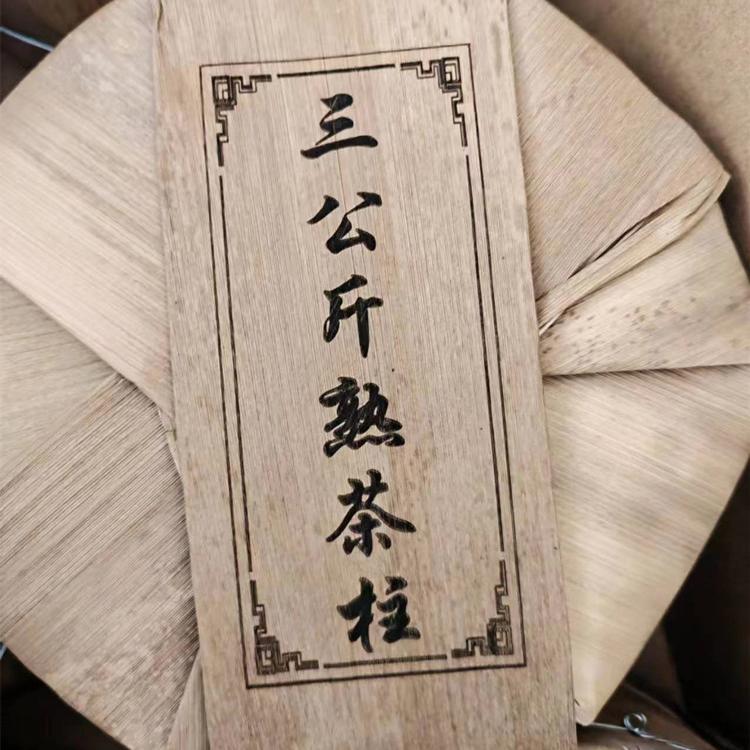 三公斤熟茶柱